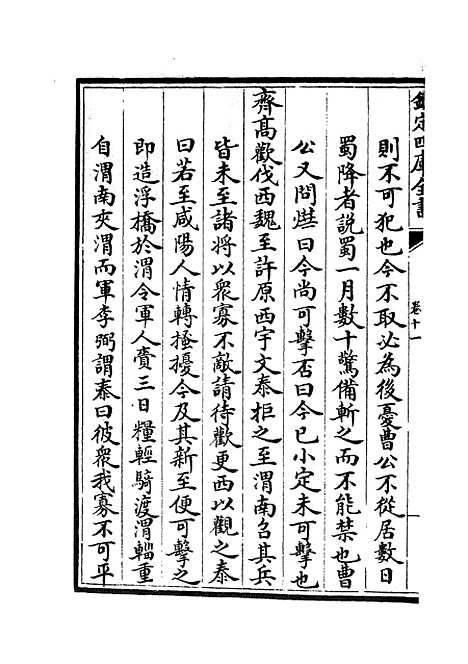 欽定四庫全書
卷十一
則不可犯也今不取必為後憂曹公不從居數日
蜀降者說蜀一月數十驚備斬之而不能禁也曹
公又問曄曰今尚可擊否曰今已小定未可擊也
齊高歡伐西魏至許原西宇文泰拒之至渭南召其兵
皆未至諸將以衆寡不敵請待歡更西以觀之泰
曰若至咸陽人情轉搔擾今及其新至便可擊之
即造浮橋於渭令軍人賫三日糧輕騎渡渭輜重
自渭南夾渭而軍李弼謂泰曰彼衆我寡不可平